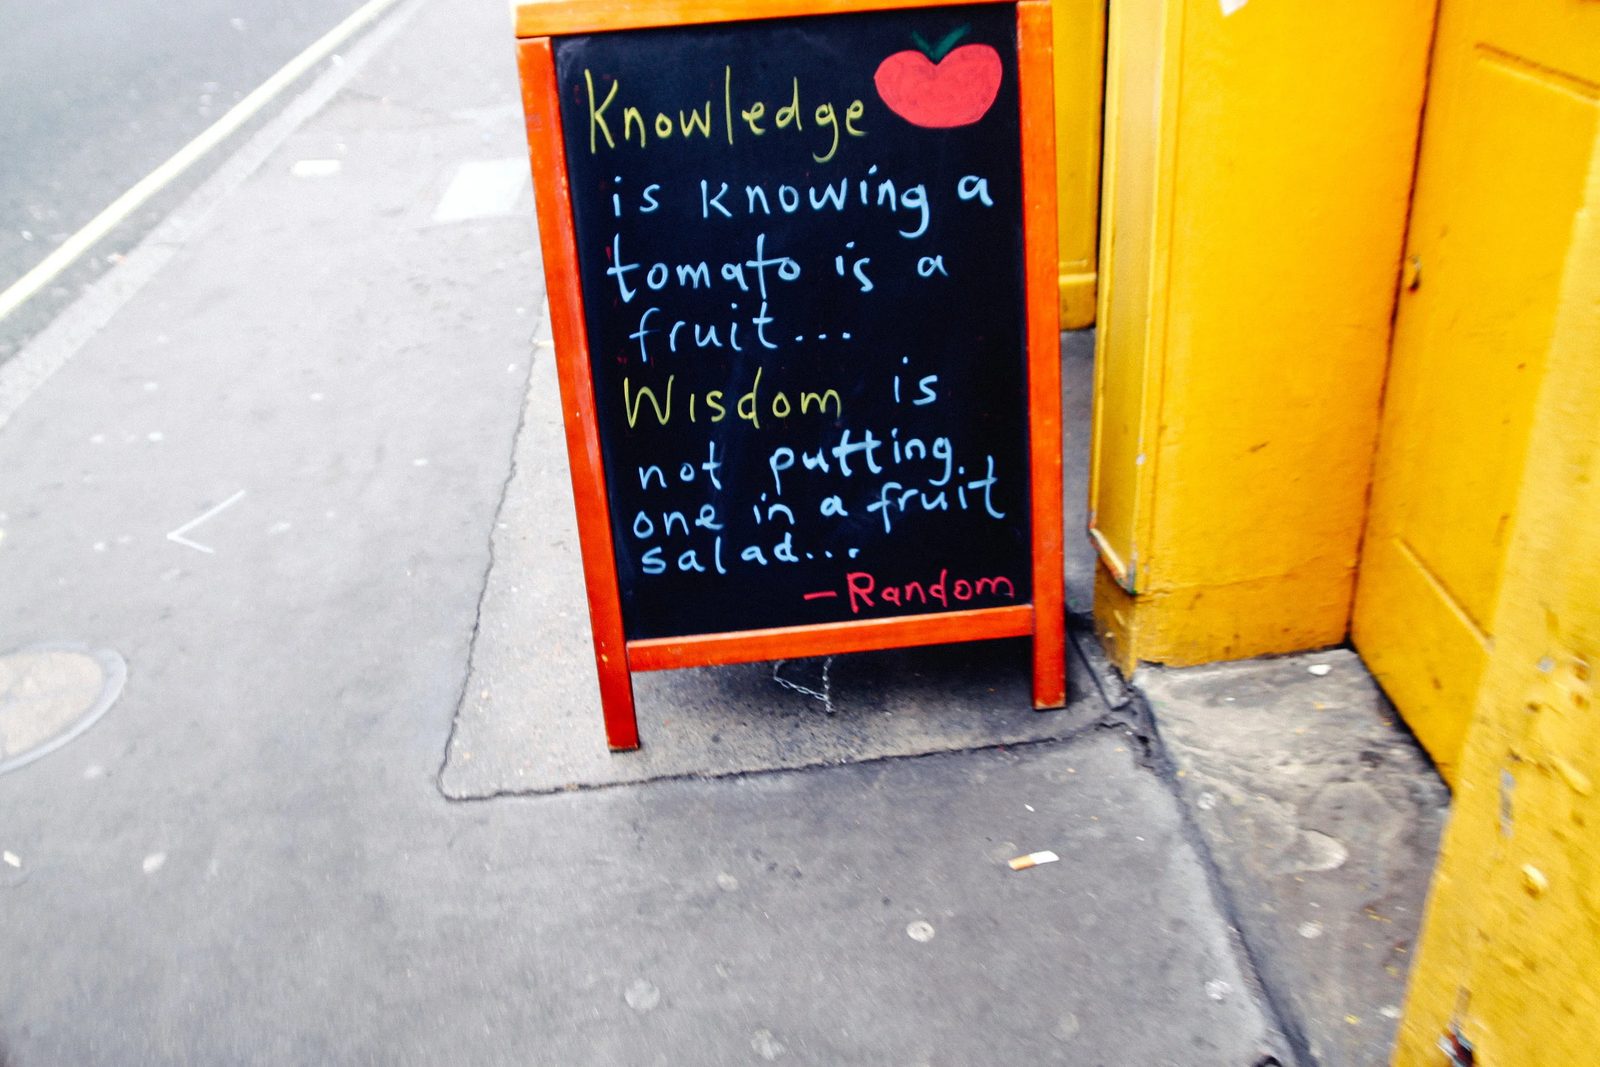 Knowledge
is knowing a
tomato is a
fruit...
Wisdom is
not putting
one in a fruit
salad...
- Random